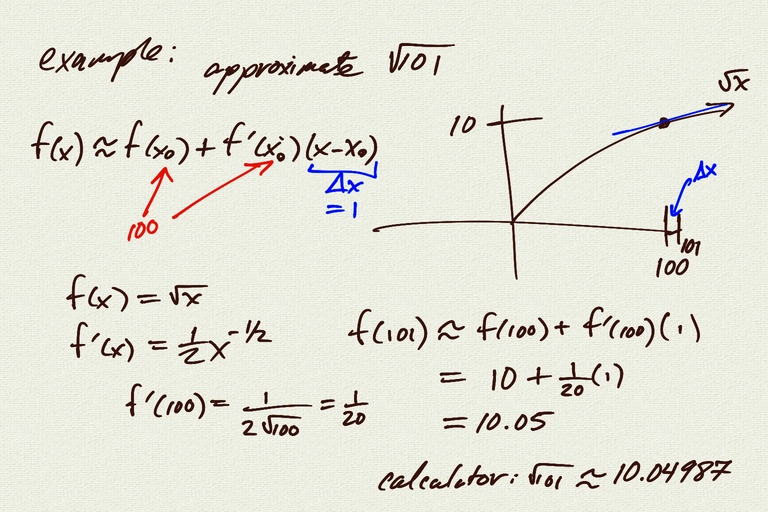 example: approximate √101
f(x) ≈ f(x₀) + f'(x₀)(x-x₀)
Δx
= 1
100
10
√x
Δx
101
100
f(x) = √x
f'(x) = 1/2 x^-1/2
f'(100) = 1/(2√100) = 1/20
f(101) ≈ f(100) + f'(100)(1)
= 10 + 1/20 (1)
= 10.05
calculator: √101 ≈ 10.04987